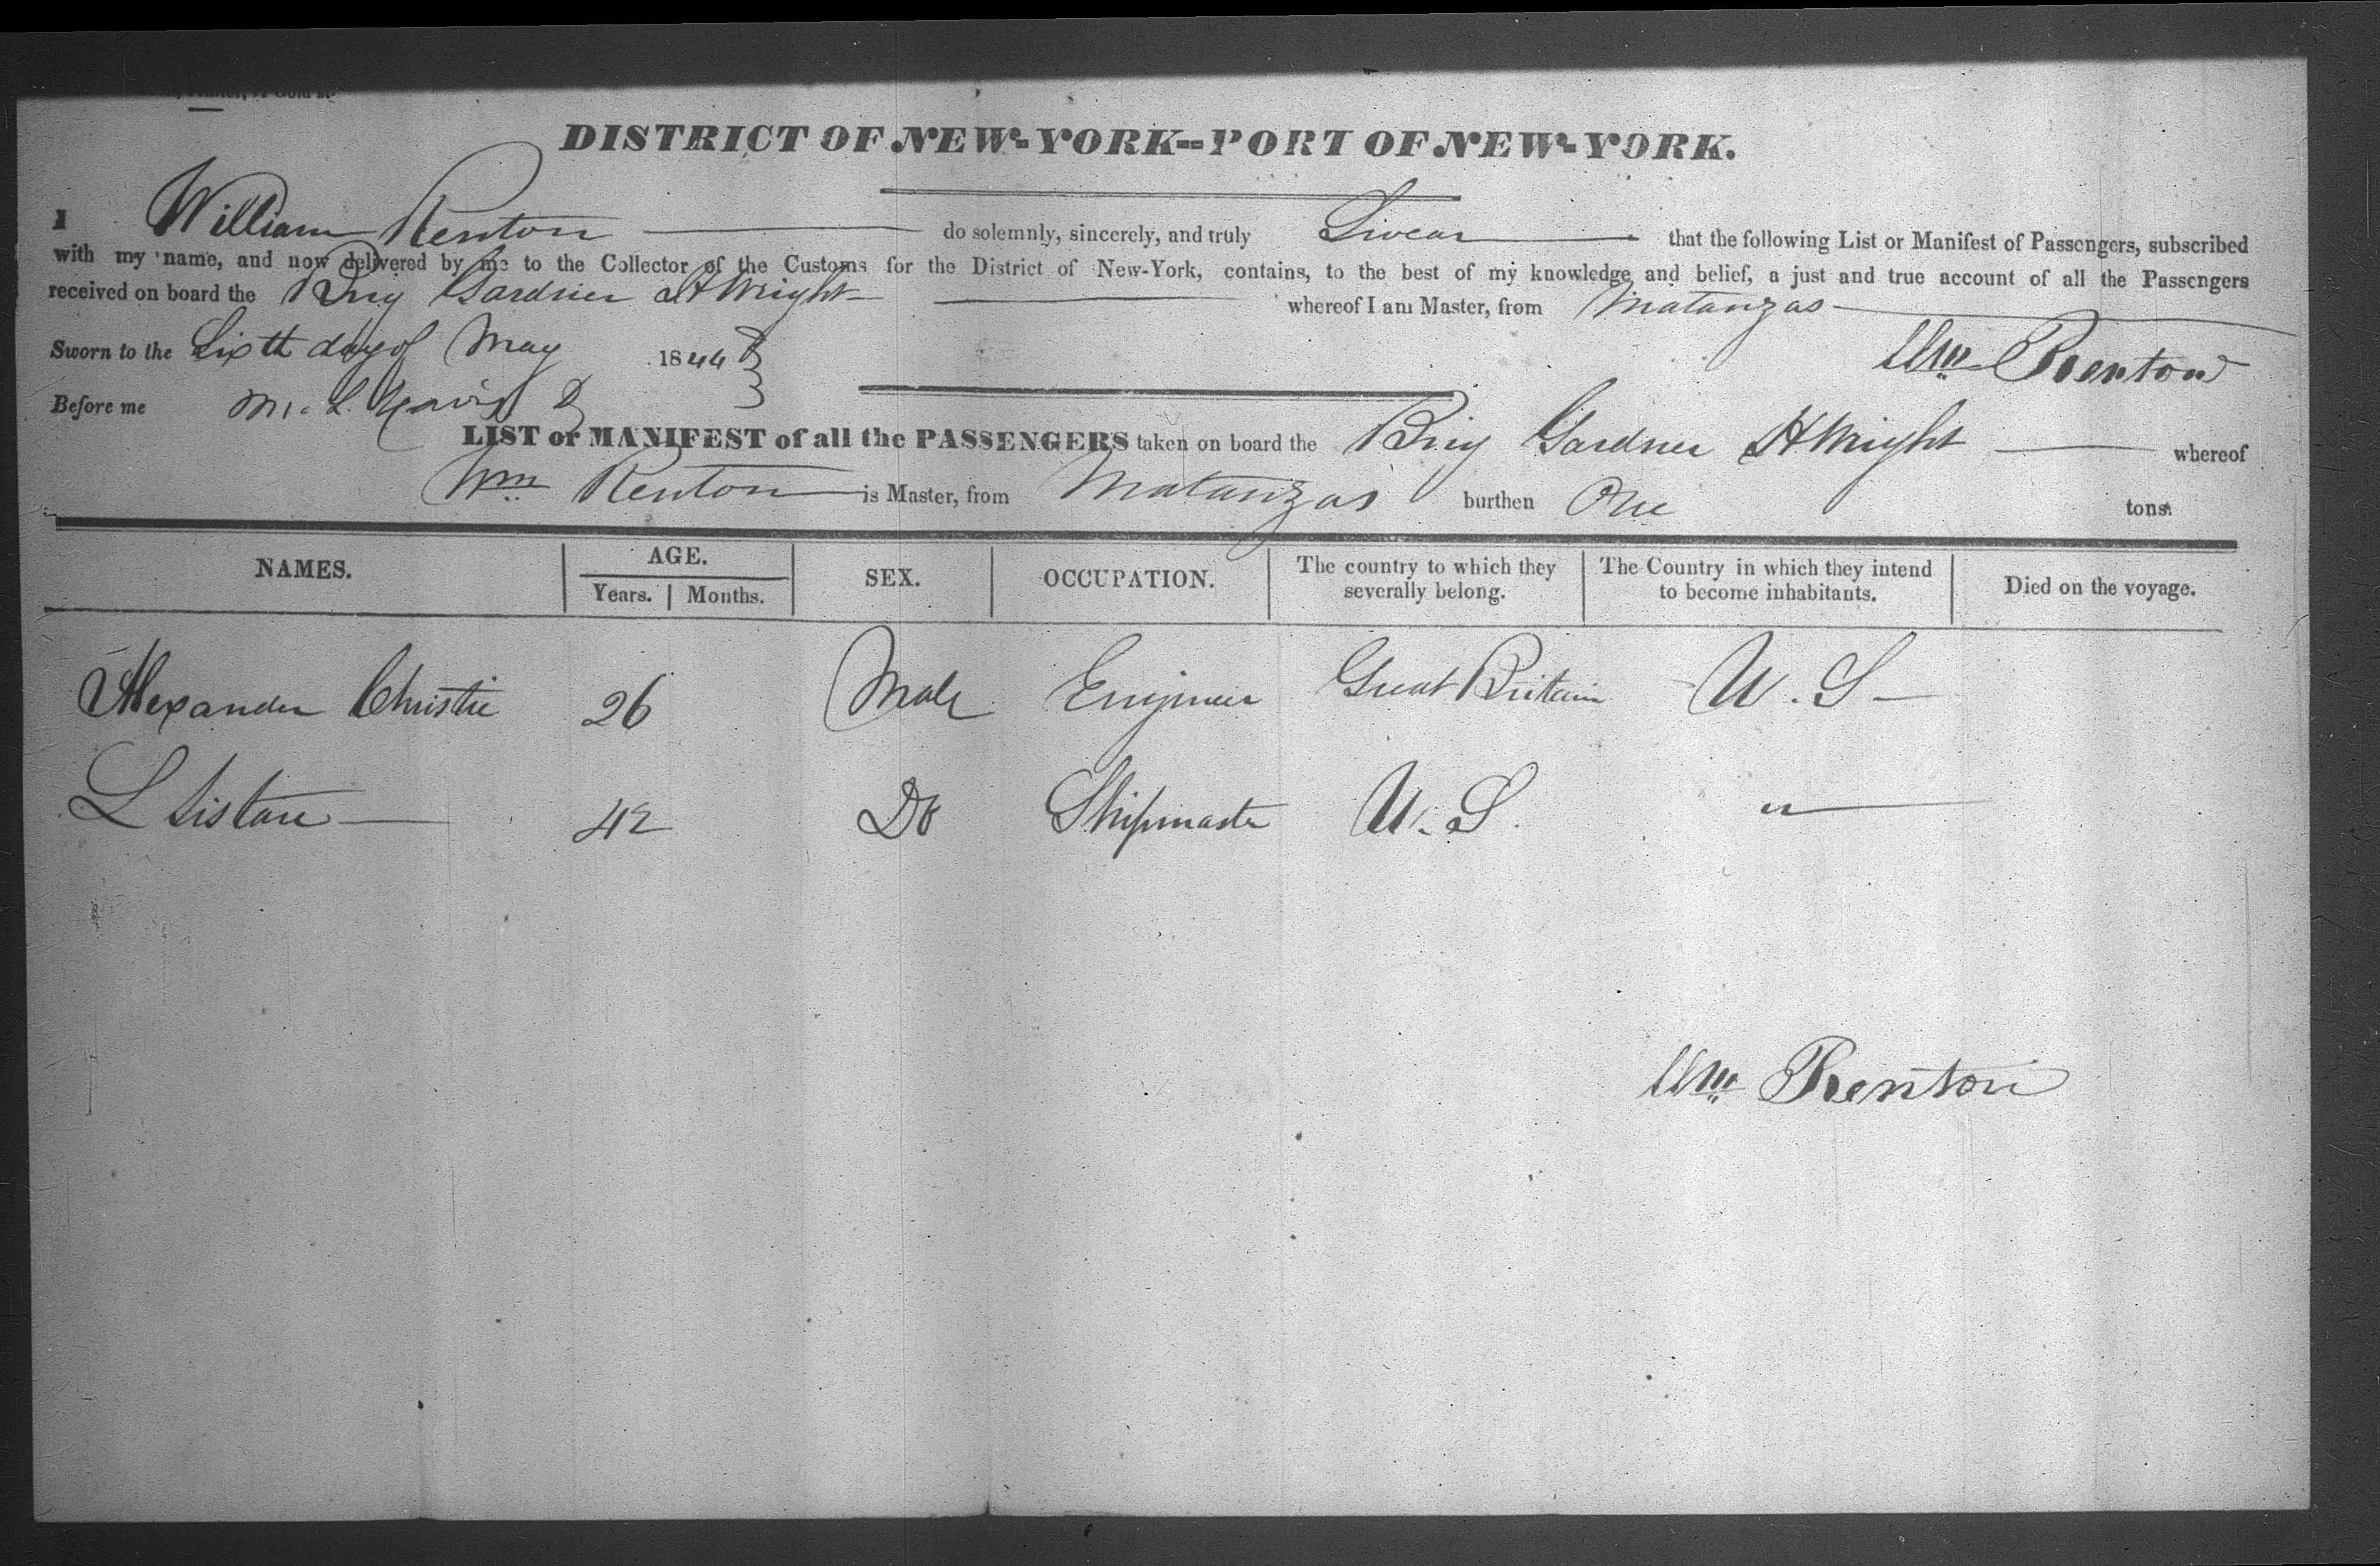 DISTRICT OF NEW-YORK--PORT OF NEW-YORK.
I William Renton do solemnly, sincerely, and truly Swear that the following List or Manifest of Passengers, subscribed
with my name, and now delivered by me to the Collector of the Customs for the District of New-York, contains, to the best of my knowledge and belief, a just and true account of all the Passengers
received on board the Brig Gardner H Wright whereof I am Master, from Matanzas
Sworn to the Sixth day of May 1844
Wm Renton
Before me M. L.
LIST or MANIFEST of all the PASSENGERS taken on board the Brig Gardner H Wright whereof
Wm Renton is Master, from Matanzas burthen One tons.
NAMES. AGE. Years. Months. SEX. OCCUPATION. The country to which they severally belong. The Country in which they intend to become inhabitants. Died on the voyage.
Alexander Christie 26 Male Engineer Great Britain U. S
L Sistare 42 Do Shipmaster U. S. "
Wm Renton